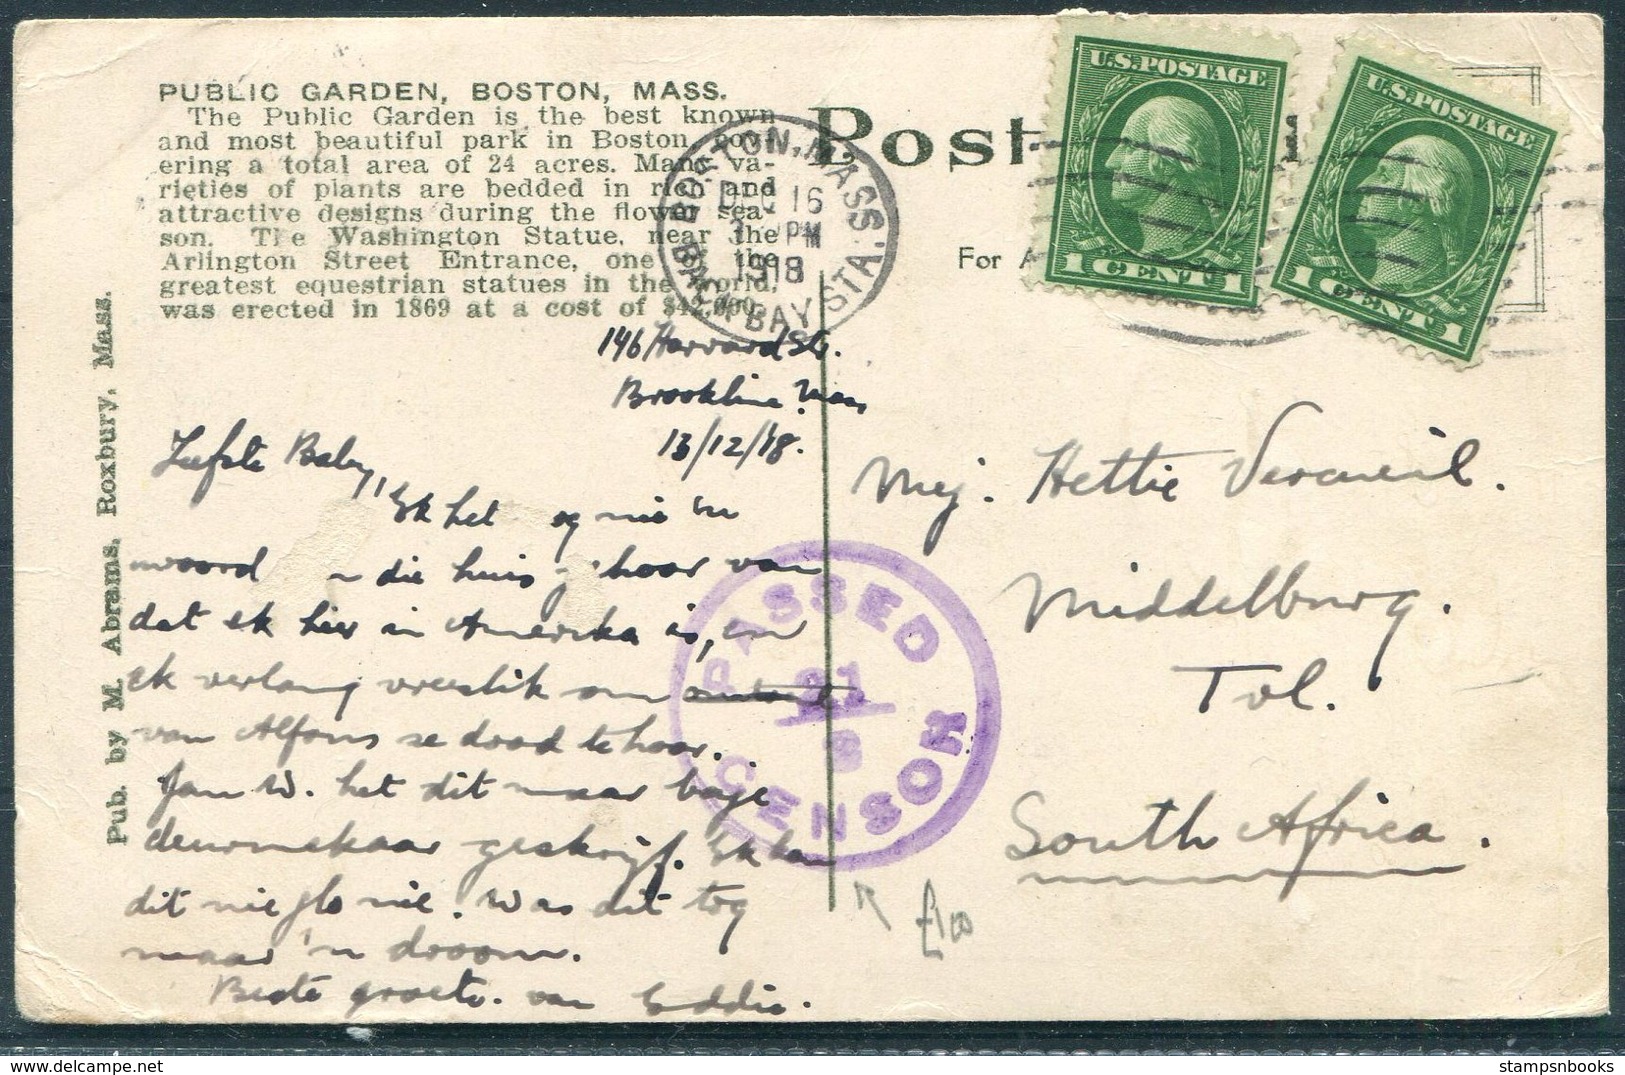 PUBLIC GARDEN, BOSTON, MASS.
The Public Garden is the best known
and most beautiful park in Boston, cov-
ering a total area of 24 acres. Many va-
rieties of plants are bedded in rich and
attractive designs during the flower sea-
son. The Washington Statue, near the
Arlington Street Entrance, one of the
greatest equestrian statues in the world,
was erected in 1869 at a cost of $42,000.
Pub. by M. Abrams, Roxbury, Mass.
Post
For A
BOSTON, MASS.
DEC 16
PM
1918
BACK BAY STA.
U.S. POSTAGE
1 CENT 1
U.S. POSTAGE
1 CENT 1
146 Harvard Str.
Brookline Mass
13/12/18.
Liefste Baby,
Ek het og nie 'n
woord die huis gehoor van
dat ek hier in Amerika is, en
ek verlang vreeslik om
van Alfons se dood te hoor.
Jan W. het dit maar baje
deurmekaar geskrijf. Ek kan
dit nie glo nie. Was dit tog
maar 'n droom.
Beste groete. van Eddie.
Mej. Hettie Vermeul.
Middelburg.
Tvl.
South Africa.
PASSED
CENSOR
£100
stampsnbooks